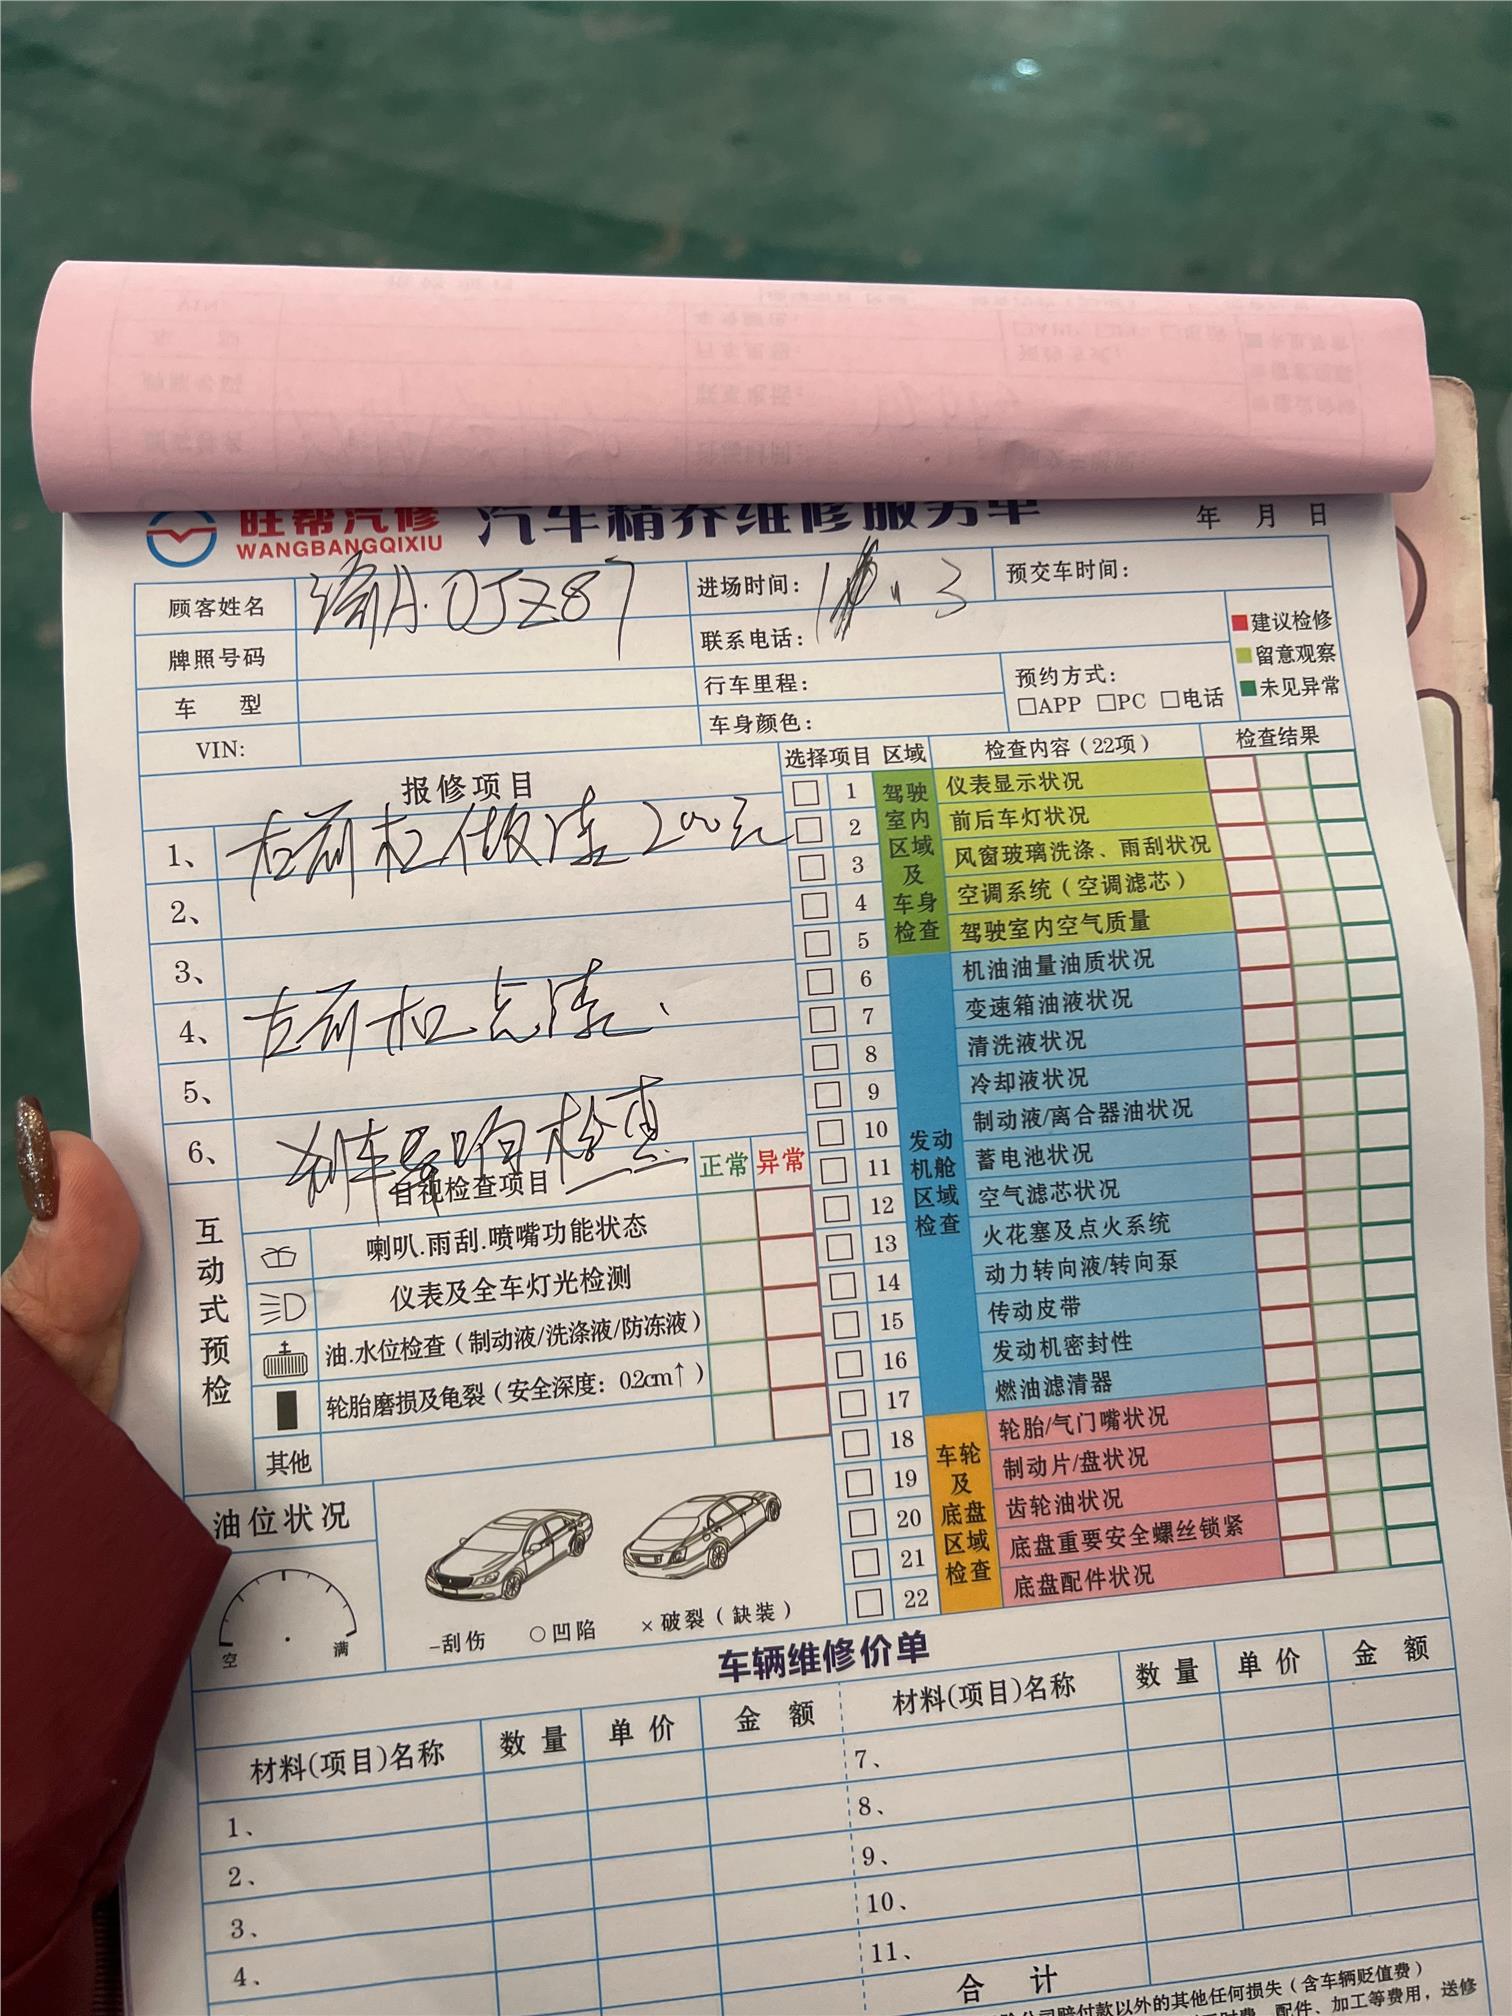 旺帮汽修 汽车精养维修服务单 年 月 日
WANGBANGQIXIU
顾客姓名 渝A·0JZ87 进场时间: 预交车时间:
牌照号码 联系电话:
车 型 行车里程: 预约方式:
□APP □PC □电话
VIN: 车身颜色:
建议检修
留意观察
未见异常
报修项目
1、 右前杠做漆200元
2、
3、
4、 左前杠点漆、
5、
6、 刹车异响检查
选择项目 区域 检查内容（22项） 检查结果
驾驶室内区域及车身检查
1 仪表显示状况
2 前后车灯状况
3 风窗玻璃洗涤、雨刮状况
4 空调系统（空调滤芯）
5 驾驶室内空气质量
发动机舱区域检查
6 机油油量油质状况
7 变速箱油液状况
8 清洗液状况
9 冷却液状况
10 制动液/离合器油状况
11 蓄电池状况
12 空气滤芯状况
13 火花塞及点火系统
14 动力转向液/转向泵
15 传动皮带
16 发动机密封性
17 燃油滤清器
车轮及底盘区域检查
18 轮胎/气门嘴状况
19 制动片/盘状况
20 齿轮油状况
21 底盘重要安全螺丝锁紧
22 底盘配件状况
互动式预检
自视检查项目 正常 异常
喇叭.雨刮.喷嘴功能状态
仪表及全车灯光检测
油.水位检查（制动液/洗涤液/防冻液）
轮胎磨损及龟裂（安全深度：0.2cm↑）
其他
油位状况
空 满
-刮伤 ○凹陷 ×破裂（缺装）
车辆维修价单
材料(项目)名称 数量 单价 金额 材料(项目)名称 数量 单价 金额
1、 7、
2、 8、
3、 9、
4、 10、
11、
合 计
公司赔付款以外的其他任何损失（含车辆贬值费）
配件、加工等费用，送修